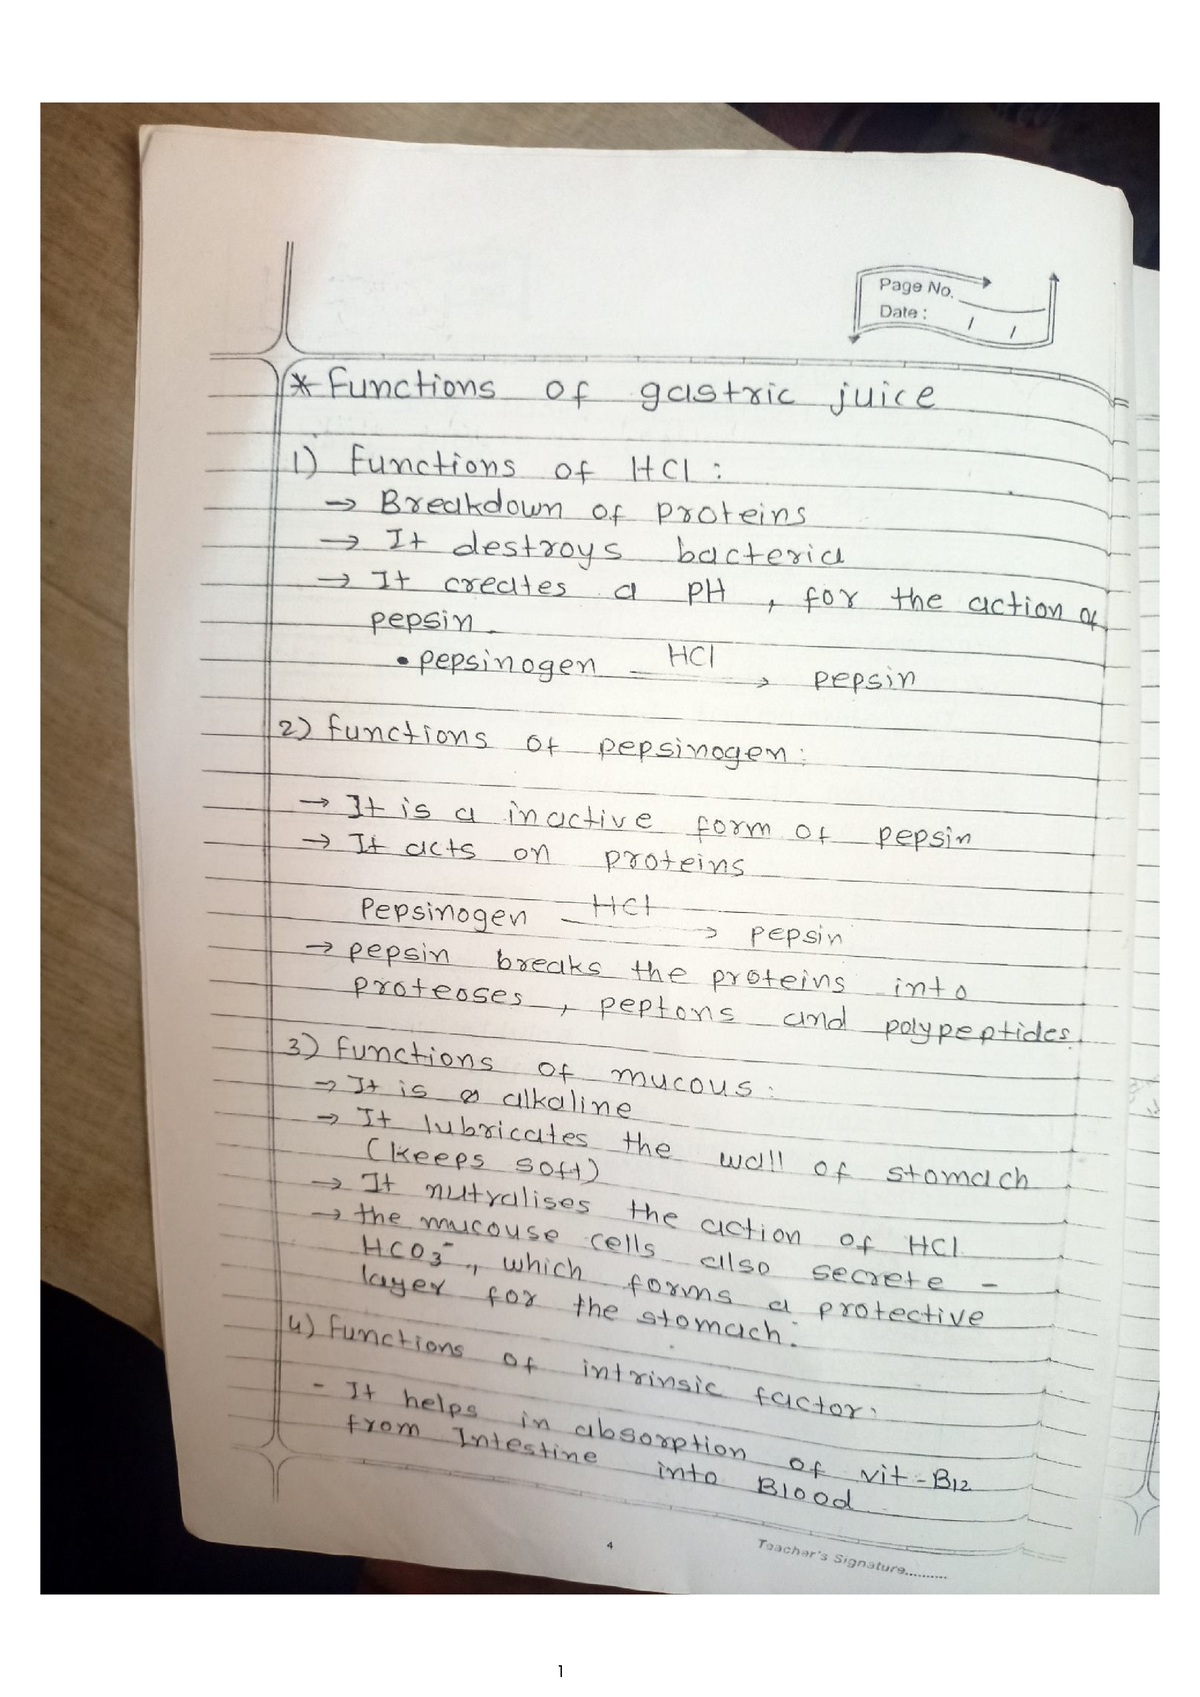 Page No.
Date : / /
* Functions of gastric juice
1) Functions of HCl :
→ Breakdown of proteins
→ It destroys bacteria
→ It creates a PH , for the action of
pepsin.
• pepsinogen HCl → pepsin
2) Functions of pepsinogen :
→ It is a inactive form of pepsin
→ It acts on proteins
Pepsinogen HCl → pepsin
→ pepsin breaks the proteins into
proteoses, peptons and polypeptides.
3) Functions of mucous :
→ It is alkaline
→ It lubricates the wall of stomach
(keeps soft)
→ It nutralises the action of HCl
→ the mucouse cells also secrete -
HCO3⁻, which forms a protective
layer for the stomach.
4) Functions of intrinsic factor :
- It helps in absorption of vit-B12
from Intestine into Blood
4
Teacher's Signature..........
1